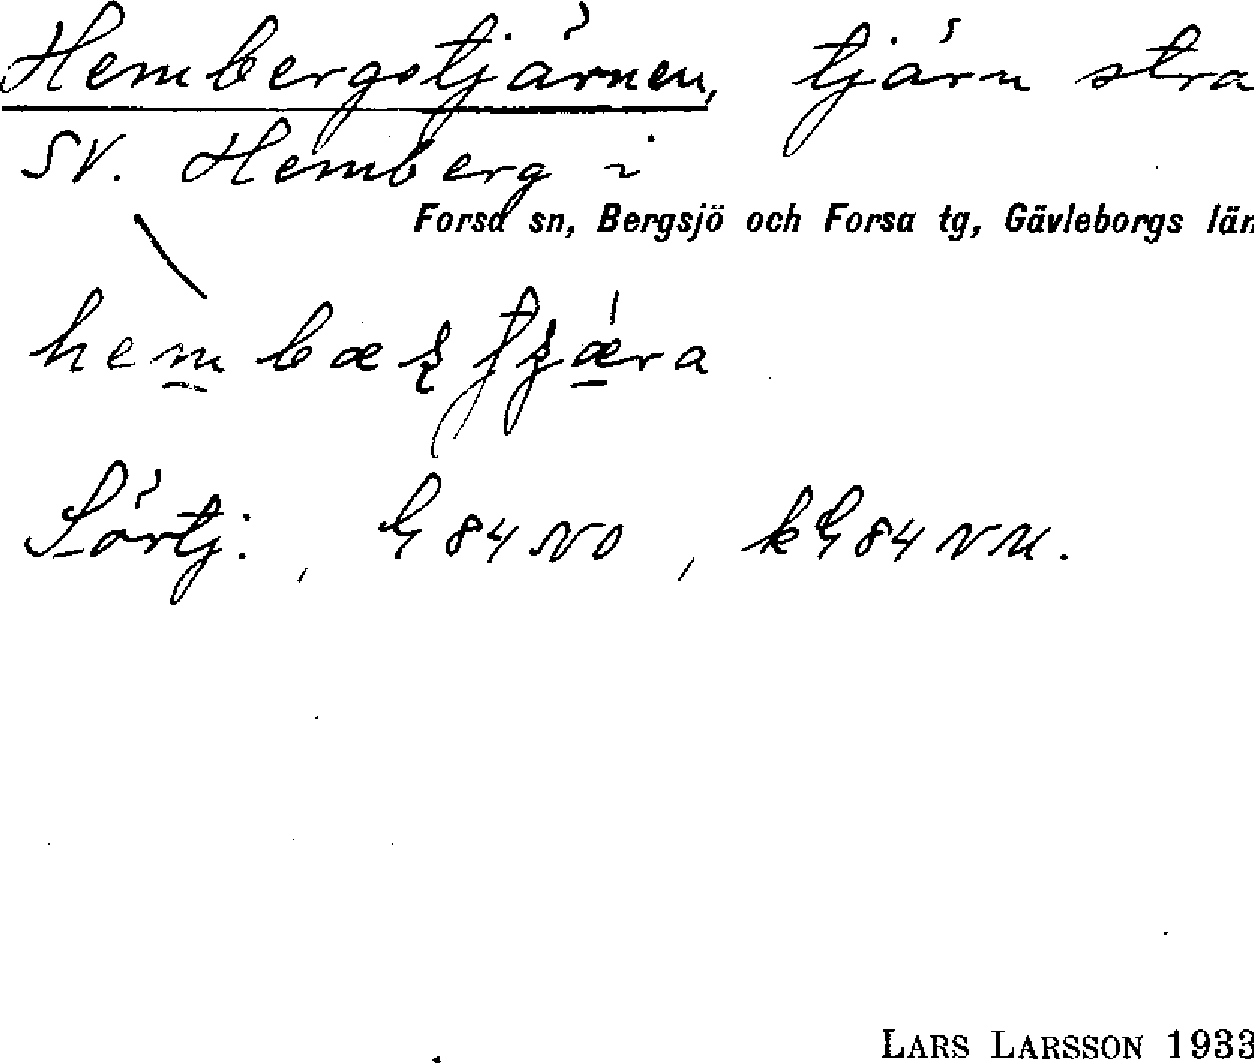 Hembergstjärnen, tjärn stra
SV. Hemberg i
Forsa sn, Bergsjö och Forsa tg, Gävleborgs län
Sörtj.
LARS LARSSON 1933